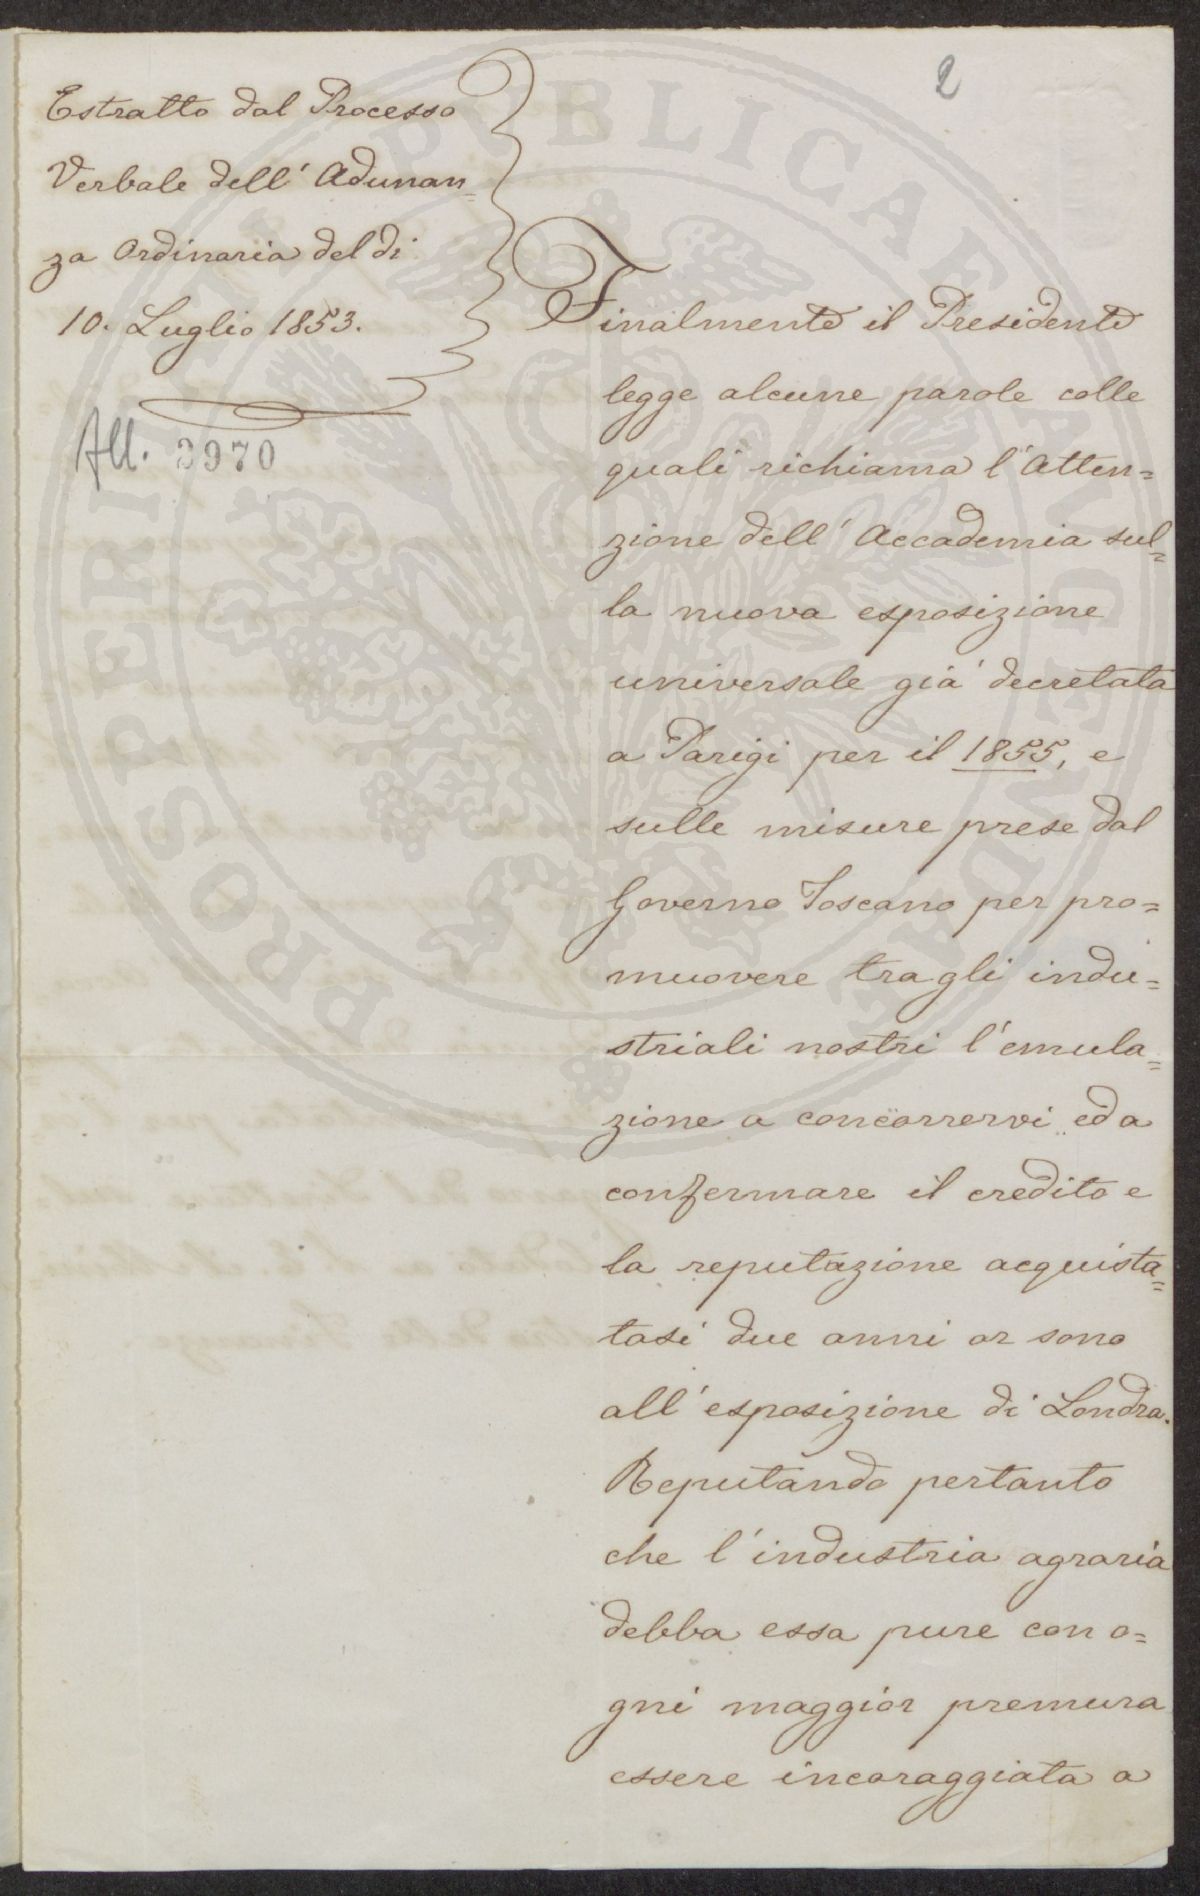 2
Estratto dal Processo
Verbale dell' Adunan=
za Ordinaria del di
10. Luglio 1853.
All. 3970
Finalmente il Presidente
legge alcune parole colle
quali richiama l'Atten=
zione dell' Accademia sul=
la nuova esposizione
universale già decretata
a Parigi per il 1855, e
sulle misure prese dal
Governo Toscano per pro=
muovere tra gli indu=
striali nostri l'emula=
zione a concorrervi ed a
confermare il credito e
la reputazione acquista=
tasi due anni or sono
all' esposizione di Londra.
Reputando pertanto
che l'industria agraria
debba essa pure con o=
gni maggior premura
essere incoraggiata a
PROSPERITATI PUBLICAE AUGENDAE